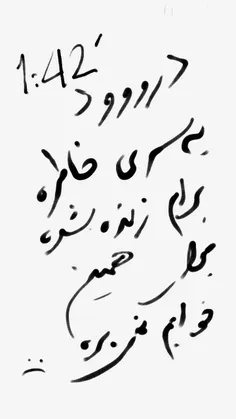 1:42'
دروووود
یه سری خاطره
برام زنده شده
برا همین
خوابم نمی بره
:(